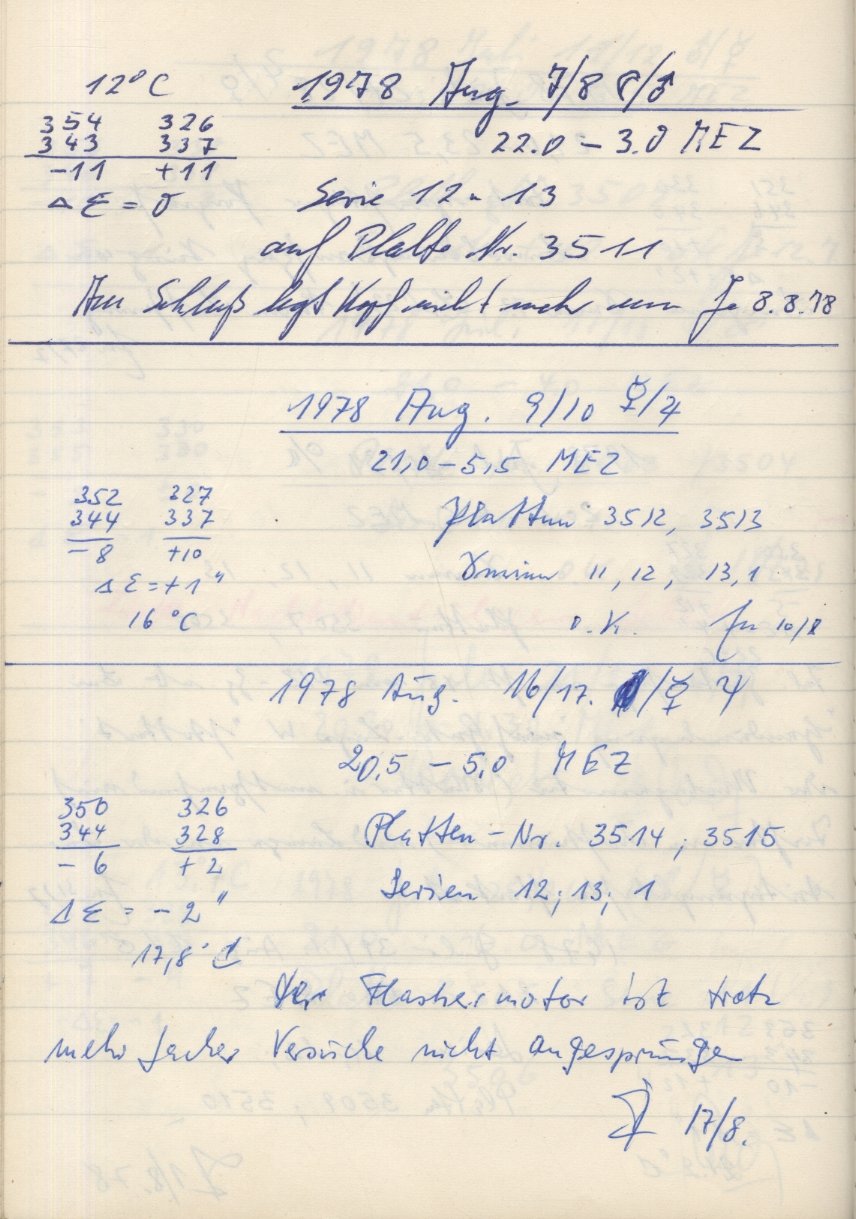 12°C
1978 Aug. 7/8 ☾/♂
354 326
343 337
-11 +11
Δ Σ = 0
22.0 – 3.0 MEZ
Serie 12 u 13
auf Platte Nr. 3511
Am Schluß legt Kopf nicht mehr um Je 8.8.78
1978 Aug. 9/10 ☿/♃
21,0 – 5,5 MEZ
352 327
344 337
-8 +10
Δ Σ = +1"
16 °C
Platten 3512, 3513
Serien 11, 12, 13, 1
o.K. 10/8
1978 Aug. 16/17. /☿ ♃
20,5 – 5,0 MEZ
350 326
344 328
- 6 + 2
Δ Σ = - 2"
17,8° C
Platten-Nr. 3514; 3515
Serien 12; 13; 1
Der Flashermotor ist trotz
mehrfacher Versuche nicht angesprungen
17/8.